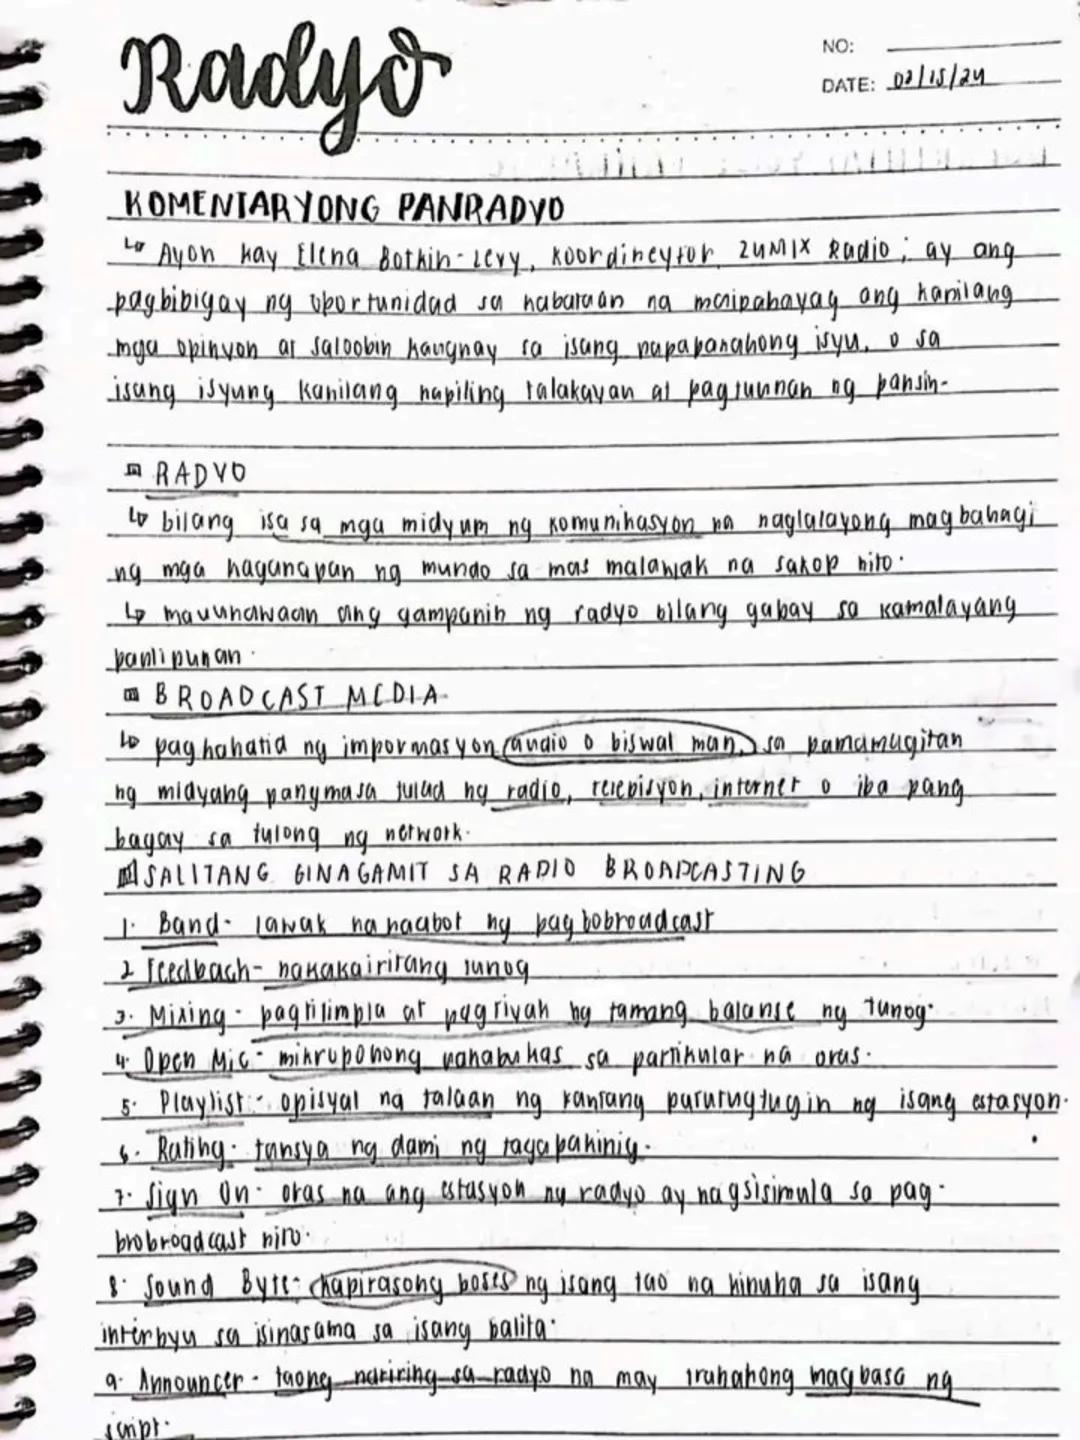 Radyo
NO:
DATE: 02/15/24
KOMENTARYONG PANRADYO
↳ Ayon kay Elena Botkin-Levy, koordineytor ZUMIX Radio; ay ang
pagbibigay ng oportunidad sa kabataan na maipahayag ang kanilang
mga opinyon at saloobin kaugnay sa isang napapanahong isyu, o sa
isang isyung kanilang napiling talakayan at pagtuunan ng pansin-
RADYO
↳ bilang isa sa mga midyum ng komunikasyon na naglalayong magbahagi
ng mga kaganapan ng mundo sa mas malawak na sakop nito.
↳ mauunawaan ang gampanin ng radyo bilang gabay sa kamalayang
panlipunan.
BROADCAST MEDIA
↳ paghahatid ng impormasyon audio o biswal man, sa pamamagitan
ng midyang pangmasa tulad ng radio, telebisyon, internet o iba pang
bagay sa tulong ng network.
SALITANG GINAGAMIT SA RADIO BROADCASTING
1. Band- lawak na naabot ng pagbobroadcast
2 Feedback- nakakairitang tunog
3. Mixing - pagtitimpla at pagtiyak ng tamang balanse ng tunog.
4. Open Mic- mikropohong nakabukas sa partikular na oras.
5. Playlist- opisyal na talaan ng kantang patutugtugin ng isang estasyon.
6. Rating- tansya ng dami ng tagapakinig.
7. Sign On- oras na ang estasyon ng radyo ay nagsisimula sa pag-
brobroadcast nito.
8. Sound Byte- kapirasong boses ng isang tao na kinuha sa isang
interbyu sa isinasama sa isang balita.
9. Announcer - taong naririnig sa radyo na may trabahong magbasa ng
script.